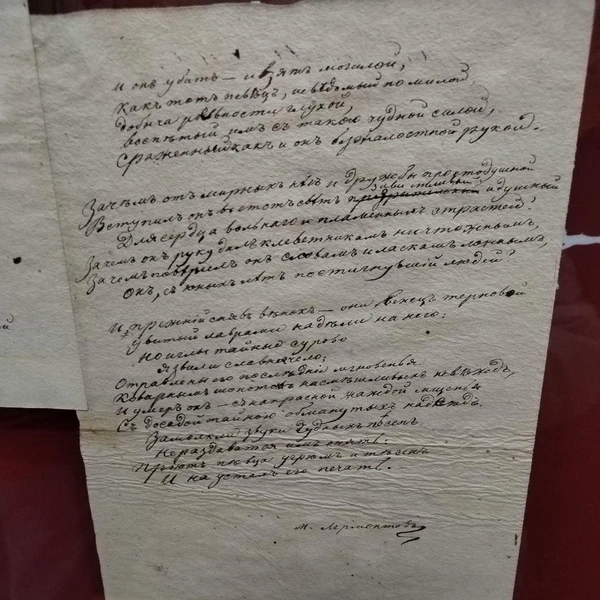 И онъ убитъ — и взятъ могилой,
Какъ тотъ пѣвецъ, невѣдомый но милой,
Добыча ревности глухой,
Воспѣтый имъ съ такою чудной силой,
Сраженный какъ и онъ безжалостной рукой.
Зачѣмъ отъ мирныхъ нѣгъ и дружбы простодушной
завистливый
Вступилъ онъ въ этотъ свѣтъ и душный
Для сердца вольнаго и пламенныхъ страстей?
Зачемъ онъ руку далъ клеветникамъ ничтожнымъ,
Зачемъ повѣрилъ онъ словамъ и ласкамъ ложнымъ,
Онъ, съ юныхъ лѣтъ постигнувшій людей?
И прежній снявъ вѣнокъ — они венецъ терновой
Увитый лаврами надѣли на него:
Но иглы тайныя сурово
Язвили славно чело;
Отравлены его послѣдніе мгновенья
Коварнымъ шопотомъ насмѣшливыхъ невѣждъ,
И умеръ онъ — съ напрасной жаждой мщенья
Съ досадой тайною обманутыхъ надеждъ.
Замолкли звуки чудныхъ песенъ
Не раздаватся имъ опять:
Приютъ пѣвца угрюмъ и тѣсенъ
И на устахъ его печать.
М. Лермонтовъ
й